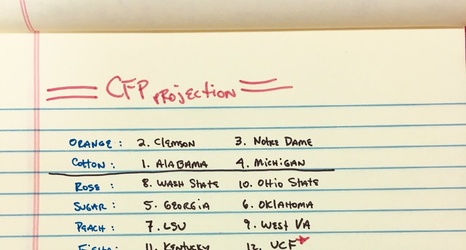 CFP PROJECTION
ORANGE: 2. CLEMSON 3. NOTRE DAME
COTTON: 1. ALABAMA 4. MICHIGAN
ROSE: 8. WASH STATE 10. OHIO STATE
SUGAR: 5. GEORGIA 6. OKLAHOMA
PEACH: 7. LSU 9. WEST VA
FIESTA: 11. KENTUCKY 12. UCF*